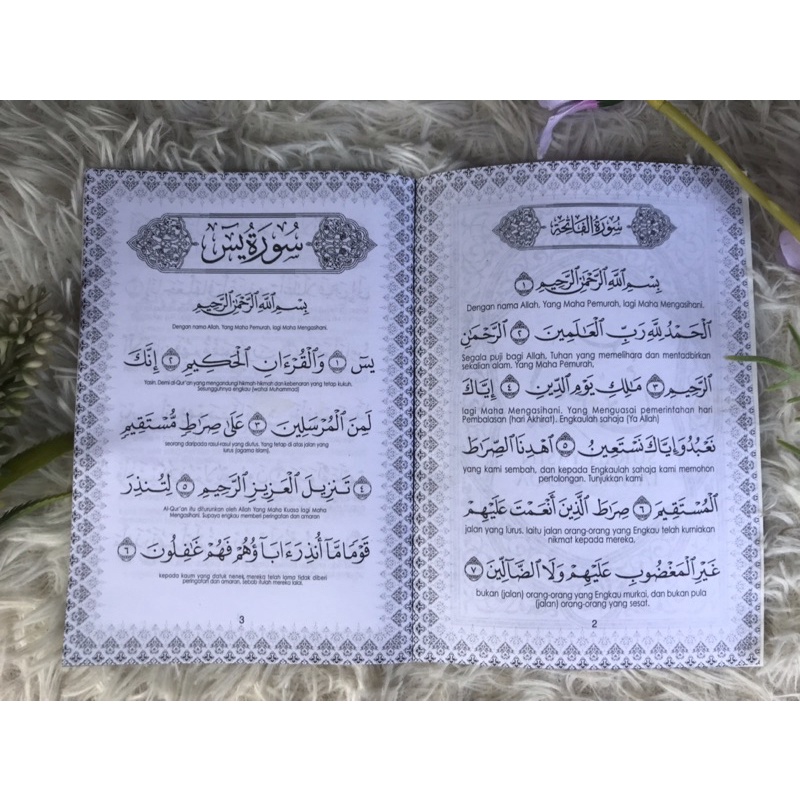 سُورَةُ الْفَاتِحَةِ
بِسْمِ اللَّهِ الرَّحْمَٰنِ الرَّحِيمِ ١
Dengan nama Allah, Yang Maha Pemurah, lagi Maha Mengasihani.
الْحَمْدُ لِلَّهِ رَبِّ الْعَالَمِينَ ٢ الرَّحْمَٰنِ
Segala puji bagi Allah, Tuhan yang memelihara dan mentadbirkan
sekalian alam. Yang Maha Pemurah,
الرَّحِيمِ ٣ مَالِكِ يَوْمِ الدِّينِ ٤ إِيَّاكَ
lagi Maha Mengasihani. Yang Menguasai pemerintahan hari
Pembalasan (hari Akhirat). Engkaulah sahaja (Ya Allah)
نَعْبُدُ وَإِيَّاكَ نَسْتَعِينُ ٥ اهْدِنَا الصِّرَاطَ
yang kami sembah, dan kepada Engkaulah sahaja kami memohon
pertolongan. Tunjukkan kami
الْمُسْتَقِيمَ ٦ صِرَاطَ الَّذِينَ أَنْعَمْتَ عَلَيْهِمْ
jalan yang lurus. Iaitu jalan orang-orang yang Engkau telah kurniakan
nikmat kepada mereka,
غَيْرِ الْمَغْضُوبِ عَلَيْهِمْ وَلَا الضَّالِّينَ ٧
bukan (jalan) orang-orang yang Engkau murkai, dan bukan pula
(jalan) orang-orang yang sesat.
2
سُورَةُ يسٓ
بِسْمِ اللَّهِ الرَّحْمَٰنِ الرَّحِيمِ
Dengan nama Allah, Yang Maha Pemurah, lagi Maha Mengasihani.
يسٓ ١ وَالْقُرْءَانِ الْحَكِيمِ ٢ إِنَّكَ
Yasin. Demi al-Qur'an yang mengandungi hikmah-hikmah dan kebenaran yang tetap kukuh.
Sesungguhnya engkau (wahai Muhammad)
لَمِنَ الْمُرْسَلِينَ ٣ عَلَىٰ صِرَاطٍ مُّسْتَقِيمٍ
seorang daripada rasul-rasul yang diutus, Yang tetap di atas jalan yang
lurus (agama Islam).
٤ تَنزِيلَ الْعَزِيزِ الرَّحِيمِ ٥ لِتُنذِرَ
Al-Qur'an itu diturunkan oleh Allah Yang Maha Kuasa lagi Maha
Mengasihani. Supaya engkau memberi peringatan dan amaran
قَوْمًا مَّآ أُنذِرَ ءَابَآؤُهُمْ فَهُمْ غَافِلُونَ ٦
kepada kaum yang datuk nenek mereka telah lama tidak diberi
peringatan dan amaran, sebab itulah mereka lalai.
3